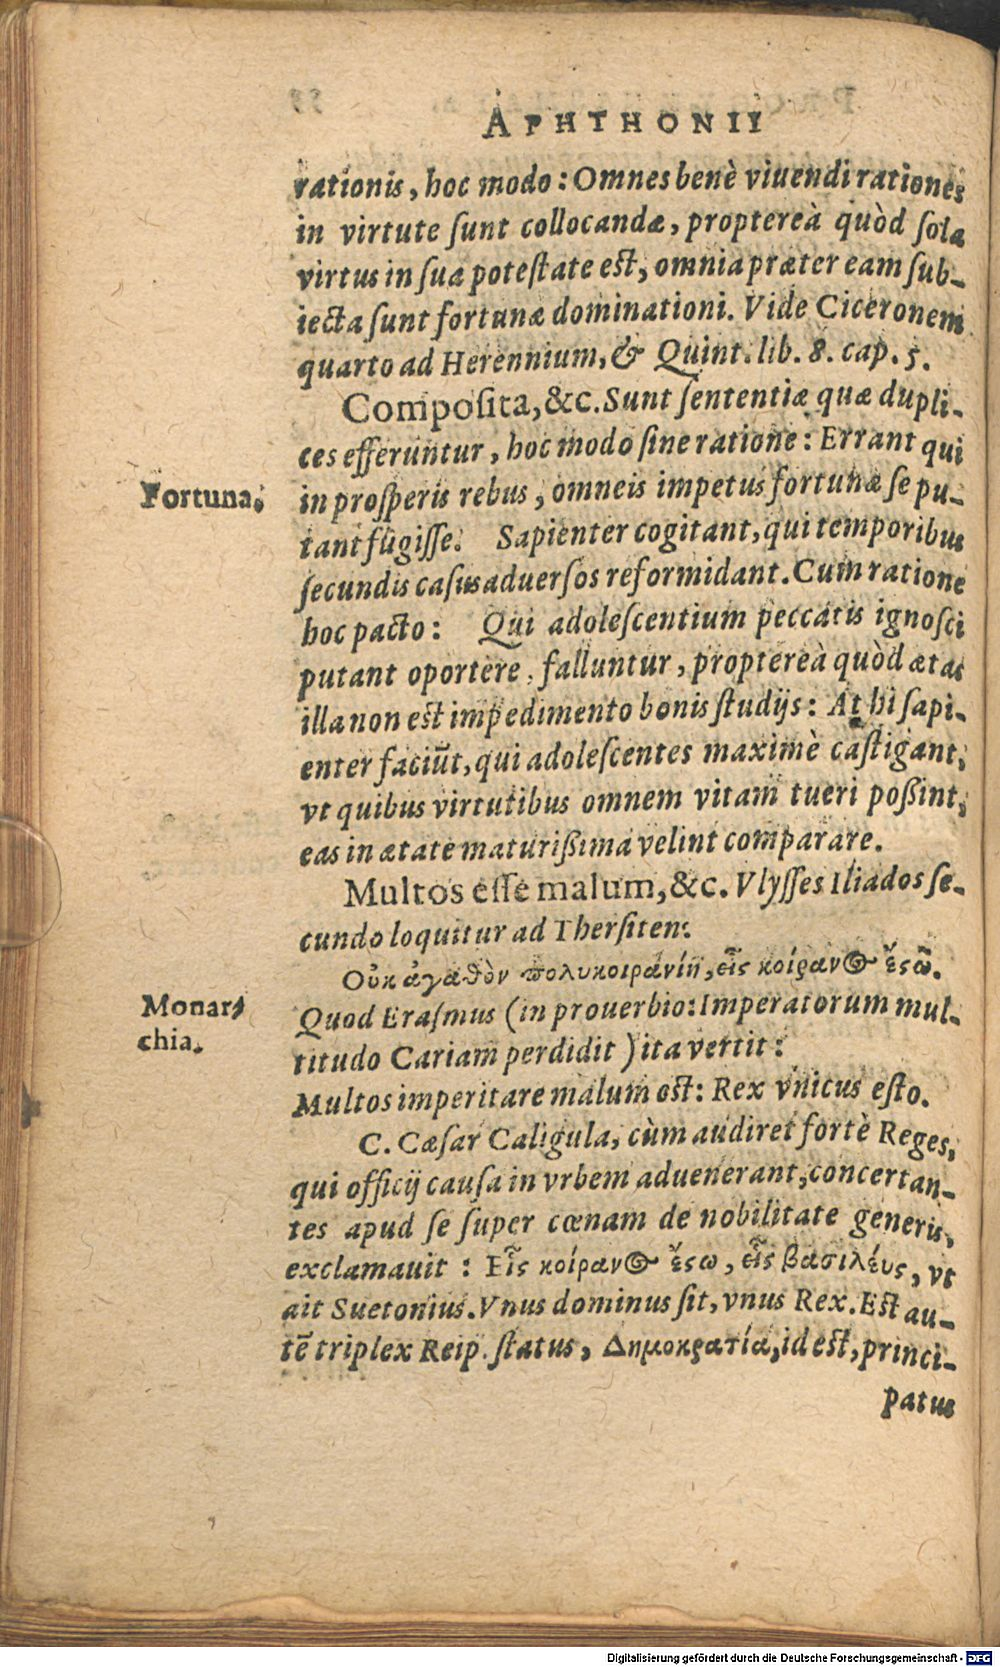 APHTHONII
rationis, hoc modo: Omnes benè viuendi rationes
in virtute ſunt collocandæ, propterеà quòd ſola
virtus in ſua poteſtate eſt, omnia præter eam ſub-
iecta ſunt fortunæ dominationi. Vide Ciceronem
quarto ad Herennium, & Quint. lib. 8. cap. 5.
Compoſita, &c. Sunt ſententiæ quæ dupli-
ces efferuntur, hoc modo ſine ratione: Errant qui
Fortuna.
in proſperis rebus, omneis impetus fortunæ ſe pu-
tant fugiſſe. Sapienter cogitant, qui temporibus
ſecundis caſus aduerſos reformidant. Cum ratione
hoc pacto: Qui adoleſcentium peccatis ignoſci
putant oportere, falluntur, propterеà quòd ætas
illa non eſt impedimento bonis ſtudijs: At hi ſapi-
enter faciūt, qui adoleſcentes maximè caſtigant,
vt quibus virtutibus omnem vitam tueri poßint,
eas in ætate maturißima velint comparare.
Multos eſſe malum, &c. Vlyſſes Iliados ſe-
cundo loquitur ad Therſiten:
Οὐκ ἀγαθὸν πολυκοιρανίη, εἷς κοίρανος ἔςω.
Monar-
chia.
Quod Eraſmus (in prouerbio: Imperatorum mul-
titudo Cariam perdidit) ita vertit:
Multos imperitare malum est: Rex vnicus eſto.
C. Cæſar Caligula, cùm audiret fortè Reges,
qui officij cauſa in vrbem aduenerant, concertan-
tes apud ſe ſuper cœnam de nobilitate generis,
exclamauit: Εἷς κοίρανος ἔςω, εἷς βασιλέυς, vt
ait Suetonius. Vnus dominus ſit, vnus Rex. Eſt au-
tē triplex Reip. ſtatus, Δημοκρατία, id eſt, princi-
patus
Digitalisierung gefördert durch die Deutsche Forschungsgemeinschaft - DFG